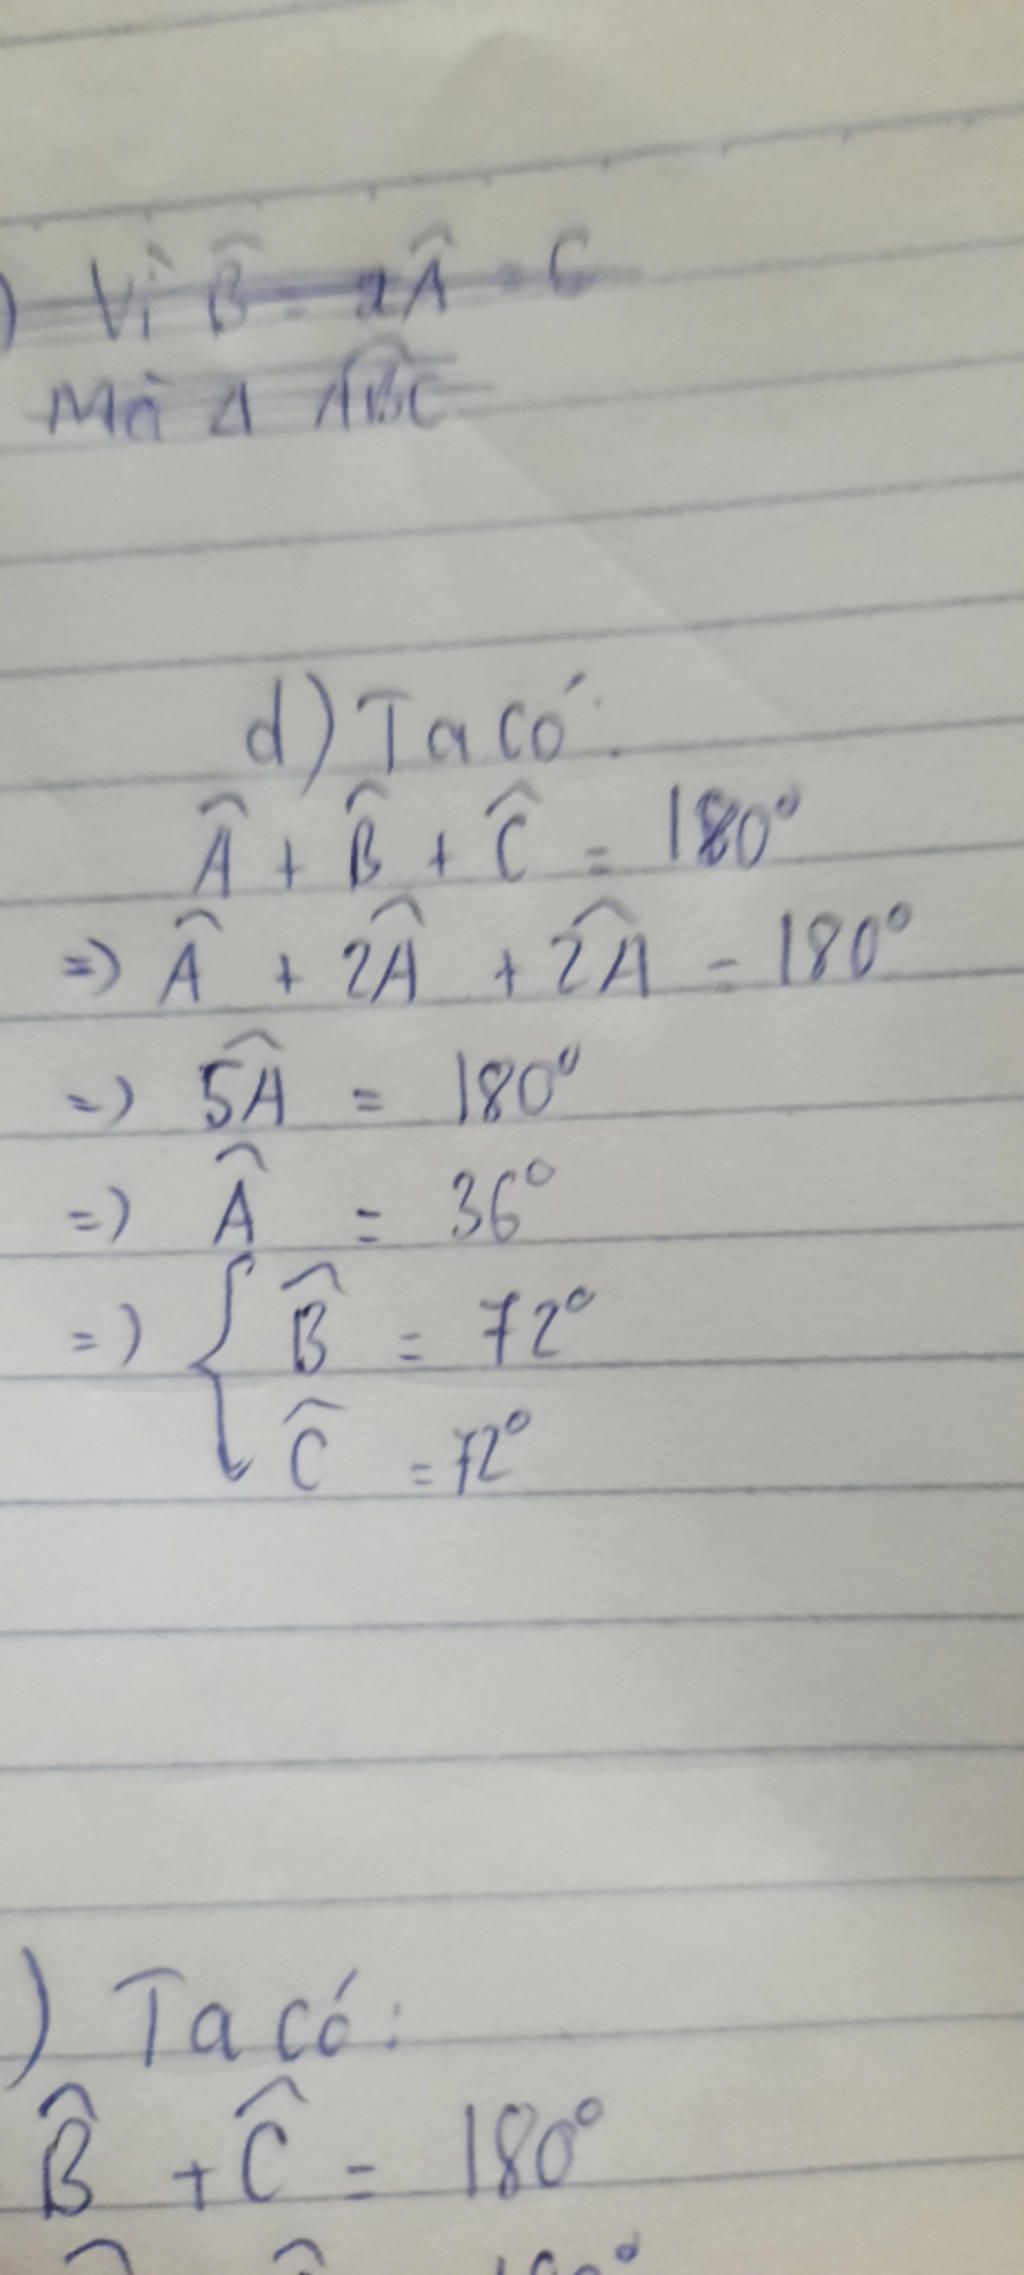 ) Vì B̂ = 2Â = C
Mà Δ ABC
d) Ta có:
Â + B̂ + Ĉ = 180°
=) Â + 2Â + 2Â = 180°
=) 5Â = 180°
=) Â = 36°
=) { B̂ = 72°
Ĉ = 72°
) Ta có:
B̂ + Ĉ = 180°